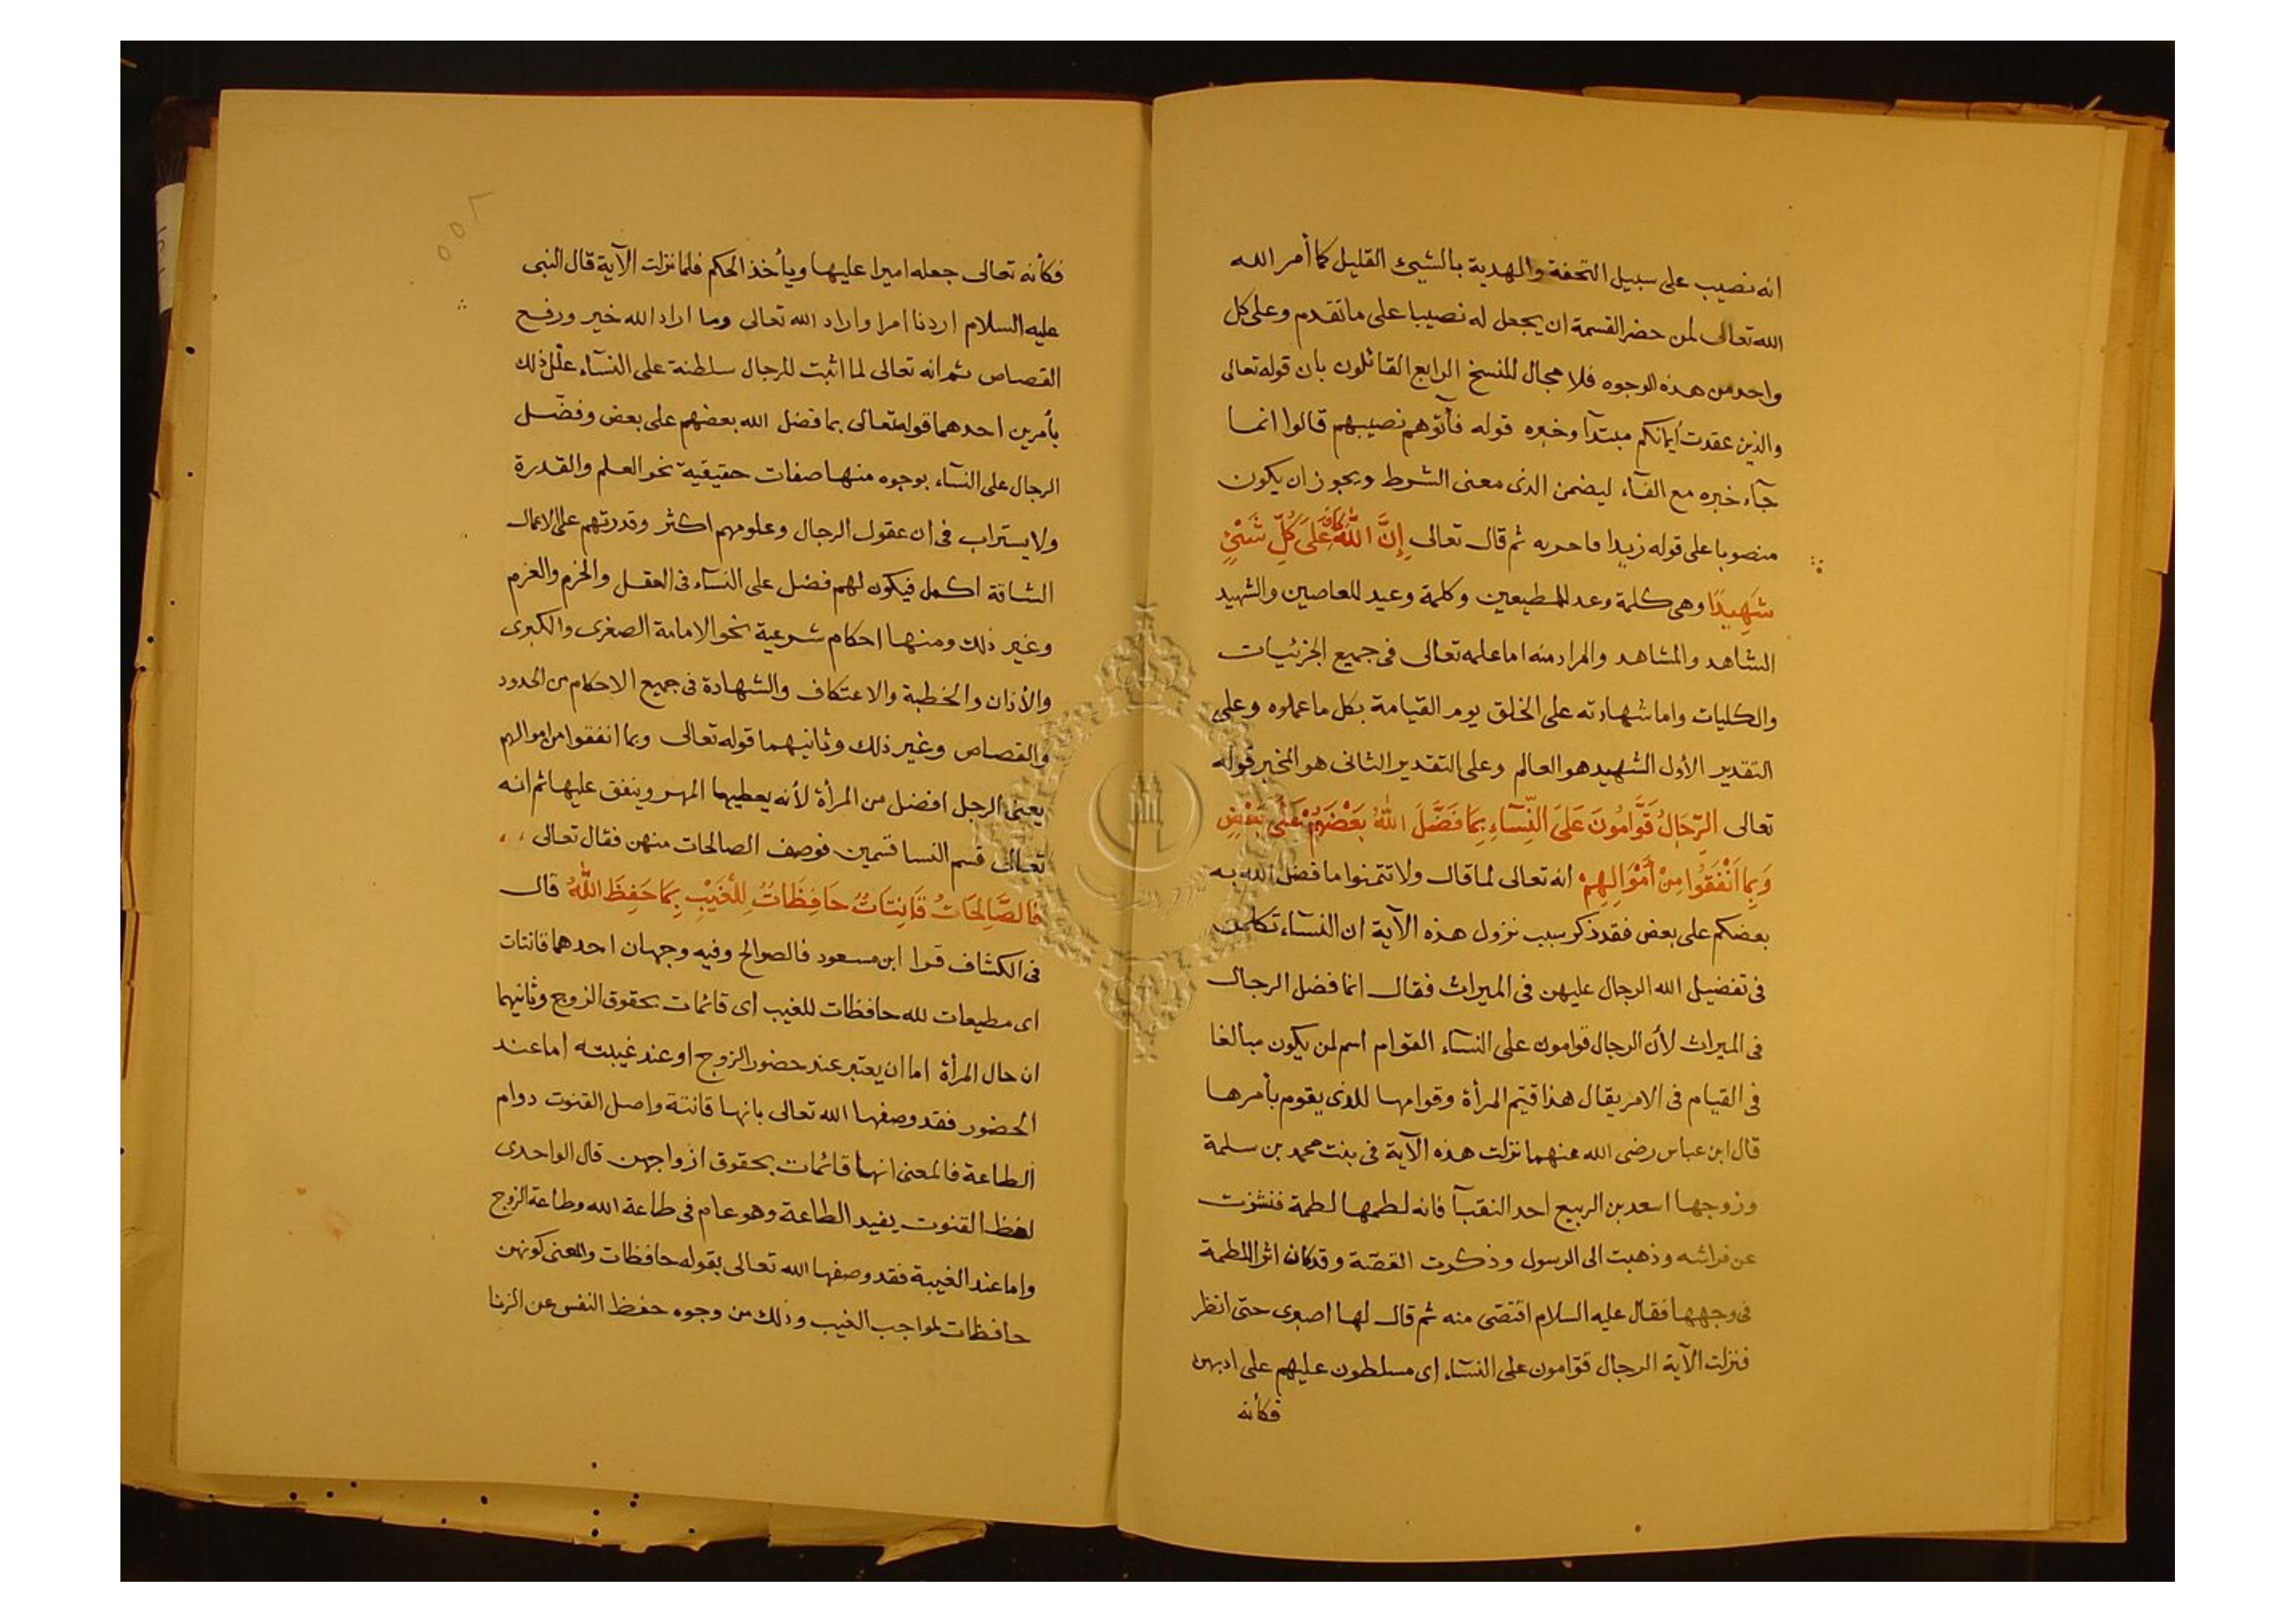 انه نصيب على سبيل التحفة والهدية بالشيئ القليل كما أمر الله
الله تعالى لمن حضر القسمة ان يجعل له نصيبا على ما تقدم وعلى كل
واحد من هذه الوجوه فلا مجال للنسخ الرابع القائلون بان قوله تعالى
والذين عقدت أيمانكم مبتدآ وخبره قوله فآتوهم نصيبهم قالوا انما
جآء خبره مع الفآء ليضمن الذى معنى الشرط ويجوز ان يكون
منصوبا على قوله زيدا فاضربه ثم قال تعالى إِنَّ اللَّهَ كَانَ عَلَى كُلِّ شَيْئٍ
شَهِيدًا وهى كلمة وعد للمطيعين وكلمة وعيد للعاصين والشهيد
الشاهد والمشاهد والمراد منه اما علمه تعالى فى جميع الجزئيات
والكليات واما شهادته على الخلق يوم القيامة بكل ما عملوه وعلى
التقدير الأول الشهيد هو العالم وعلى التقدير الثانى هو المخبر قوله
تعالى الرِّجَالُ قَوَّامُونَ عَلَى النِّسَآءِ بِمَا فَضَّلَ اللَّهُ بَعْضَهُمْ عَلَى بَعْضٍ
وَبِمَا أَنْفَقُوا مِنْ أَمْوَالِهِمْ انه تعالى لما قال ولا تتمنوا ما فضل الله به
بعضكم على بعض فقد ذكر سبب نزول هذه الآية ان النسآء تكلمن
فى تفضيل الله الرجال عليهن فى الميراث فقال انما فضل الرجال
فى الميراث لأن الرجال قوامون على النسآء القوّام اسم لمن يكون مبالغا
فى القيام فى الامر يقال هذا قيّم المرأة وقوامها للذى يقوم بأمرها
قال ابن عباس رضى الله عنهما نزلت هذه الآية فى بنت محمد بن سلمة
وزوجها اسعد بن الربيع احد النقبآ فانه لطمها لطمة فنشزت
عن فراشه وذهبت الى الرسول وذكرت القصّة وقد كان اثر اللطمة
فى وجهها فقال عليه السلام اقتصّى منه ثم قال لها اصبرى حتى انظر
فنزلت الآية الرجال قوّامون على النسآء اى مسلطون عليهم على ادبهن
فكأنه
فكأنه تعالى جعله اميرا عليها ويأخذ الحكم فلما نزلت الآية قال النبى
عليه السلام اردنا امرا واراد الله تعالى وما اراد الله خير ورفع
القصاص ثم انه تعالى لما اثبت للرجال سلطنة على النسآء علّل ذلك
بأمرين احدهما قوله تعالى بما فضل الله بعضهم على بعض وفضّل
الرجال على النسآء بوجوه منها صفات حقيقية نحو العلم والقدرة
ولا يستراب فى ان عقول الرجال وعلومهم اكثر وقدرتهم على الاعمال
الشاقة اكمل فيكون لهم فضل على النسآء فى العقل والحزم والعزم
وغير ذلك ومنها احكام شرعية نحو الامامة الصغرى والكبرى
والأذان والخطبة والاعتكاف والشهادة فى جميع الاحكام من الحدود
والقصاص وغير ذلك وثانيهما قوله تعالى وبما انفقوا من اموالهم
يعنى الرجل افضل من المرأة لأنه يعطيها المهر وينفق عليها ثم انه
تعالى قسم النسا قسمين فوصف الصالحات منهن فقال تعالى
فَالصَّالِحَاتُ قَانِتَاتٌ حَافِظَاتٌ لِلْغَيْبِ بِمَا حَفِظَ اللَّهُ قال
فى الكشاف قرا ابن مسعود فالصوالح وفيه وجهان احدهما قانتات
اى مطيعات لله حافظات للغيب اى قائمات بحقوق الزوج وثانيهما
ان حال المرأة اما ان يعتبر عند حضور الزوج او عند غيبته اما عند
الحضور فقد وصفها الله تعالى بانها قانتة واصل القنوت دوام
الطاعة فالمعنى انها قائمات بحقوق ازواجهن قال الواحدى
لفظ القنوت يفيد الطاعة وهو عام فى طاعة الله وطاعة الزوج
واما عند الغيبة فقد وصفها الله تعالى بقوله حافظات والمعنى كونهن
حافظات لمواجب الغيب وذلك من وجوه حفظ النفس عن الزنا